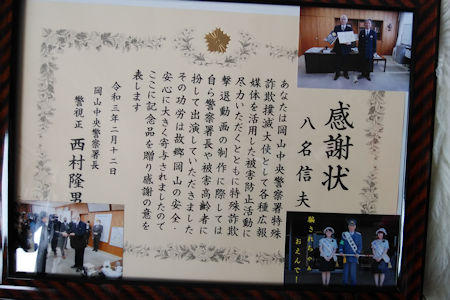 感謝状
八名信夫
あなたは岡山中央警察署特殊
詐欺撲滅大使として各種広報
媒体を活用した被害防止活動に
尽力いただくとともに特殊詐欺
撃退動画の制作に際しては
自ら警察署長や被害高齢者に
扮して出演していただきました
その功労は故郷岡山の安全・
安心に大きく寄与されましたので
ここに記念品を贈り感謝の意を
表します
令和三年二月十二日
岡山中央警察署長
警視正 西村隆男
騙されちゃぁ
おえんで!